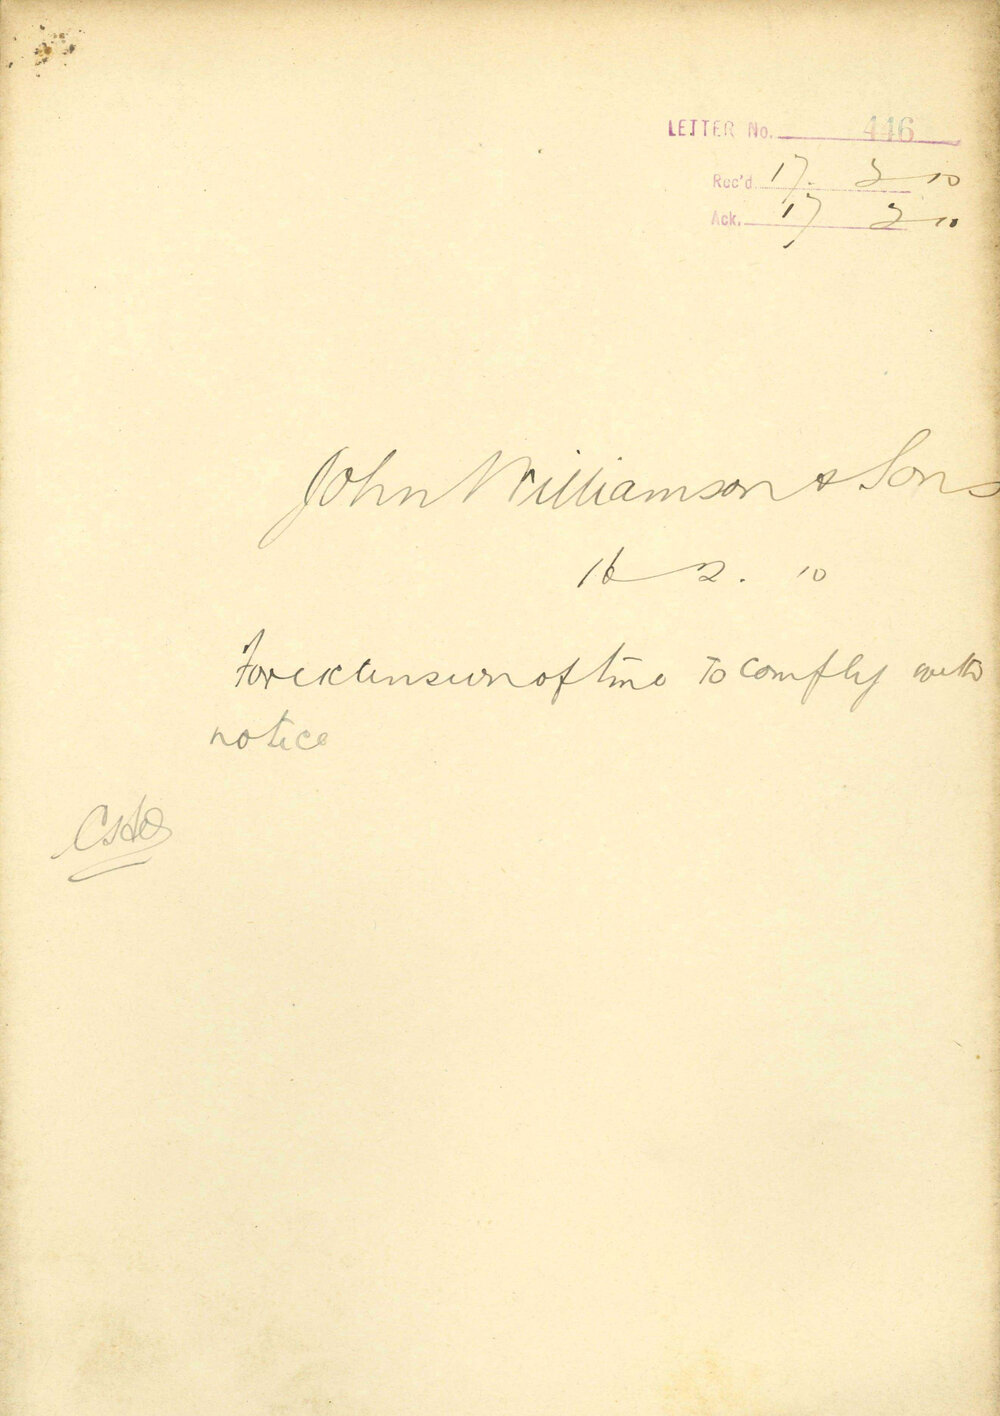 LETTER No. 446
Rec'd 17. 2 10
Ack. 17 2 10
John Williamson & Sons
16 2. 10
For extension of time To comply with
notice